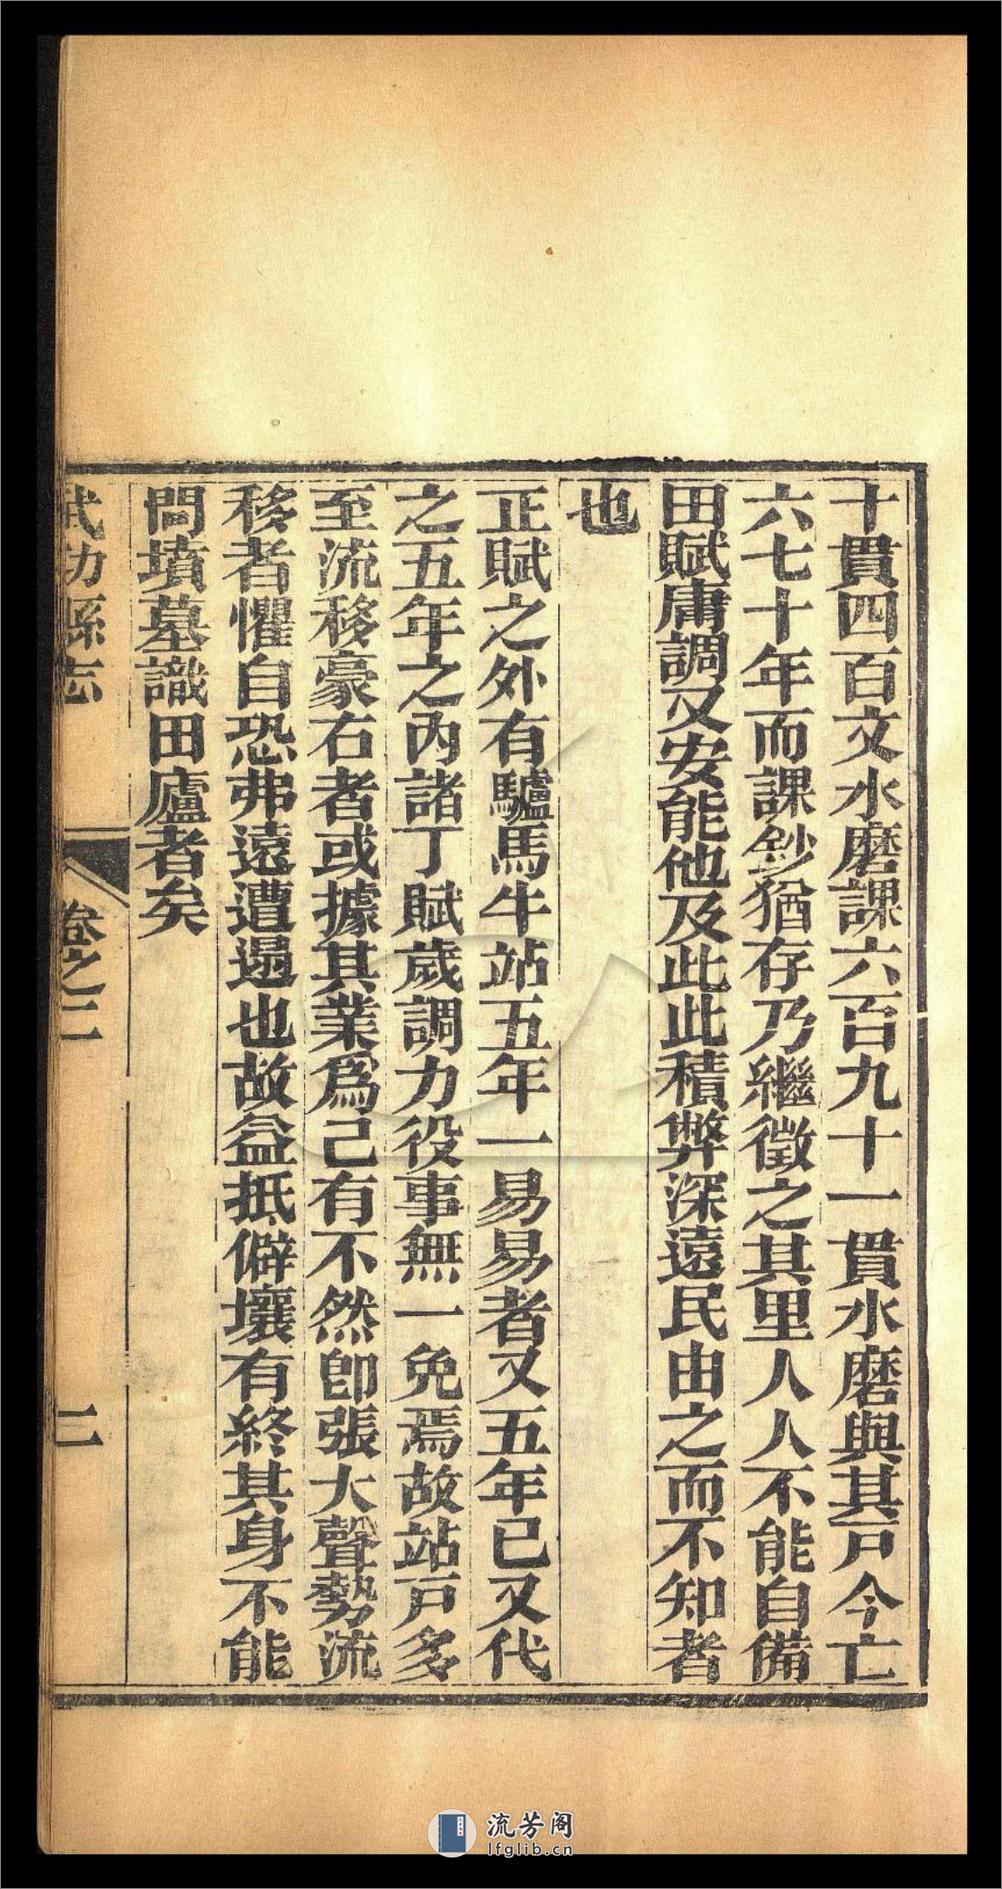 十貫四百文水磨課六百九十一貫水磨與其戸今亡
六七十年而課鈔猶存乃繼徵之其里人人不能自備
田賦庸調又安能他及此此積弊深遠民由之而不知者
也
正賦之外有驢馬牛站五年一易易者又五年已又代
之五年之內諸丁賦歲調力役事無一免焉故站戸多
至流移豪右者或據其業爲己有不然卽張大聲勢流
移者懼自恐弗遠遭遏也故益抵僻壤有終其身不能
問墳墓識田廬者矣
武功縣志
卷之二
二
流芳阁
lfglib.cn